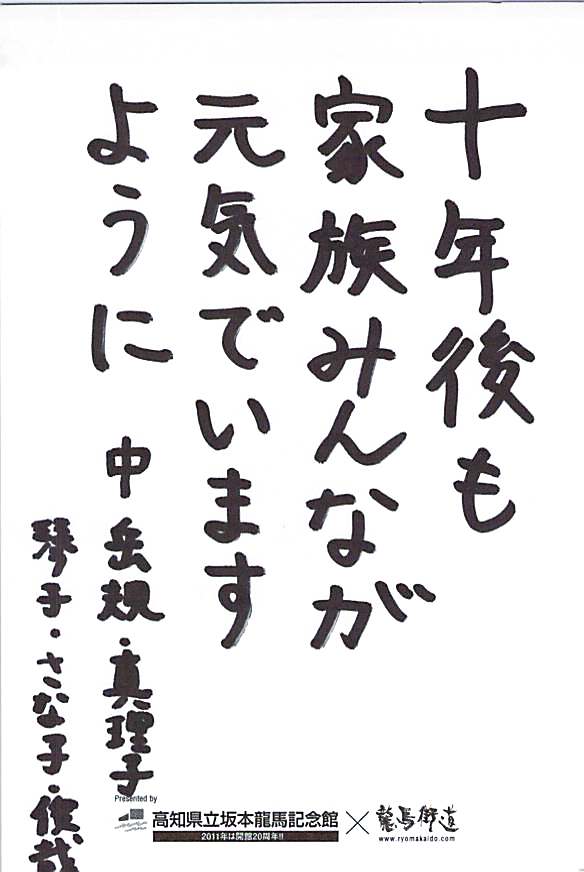 十年後も
家族みんなが
元気でいます
ように
中 岳規・真理子
琴子・さな子・俊哉
Presented by
高知県立坂本龍馬記念館
2011年は開館20周年!!
×
龍馬街道
www.ryomakaido.com